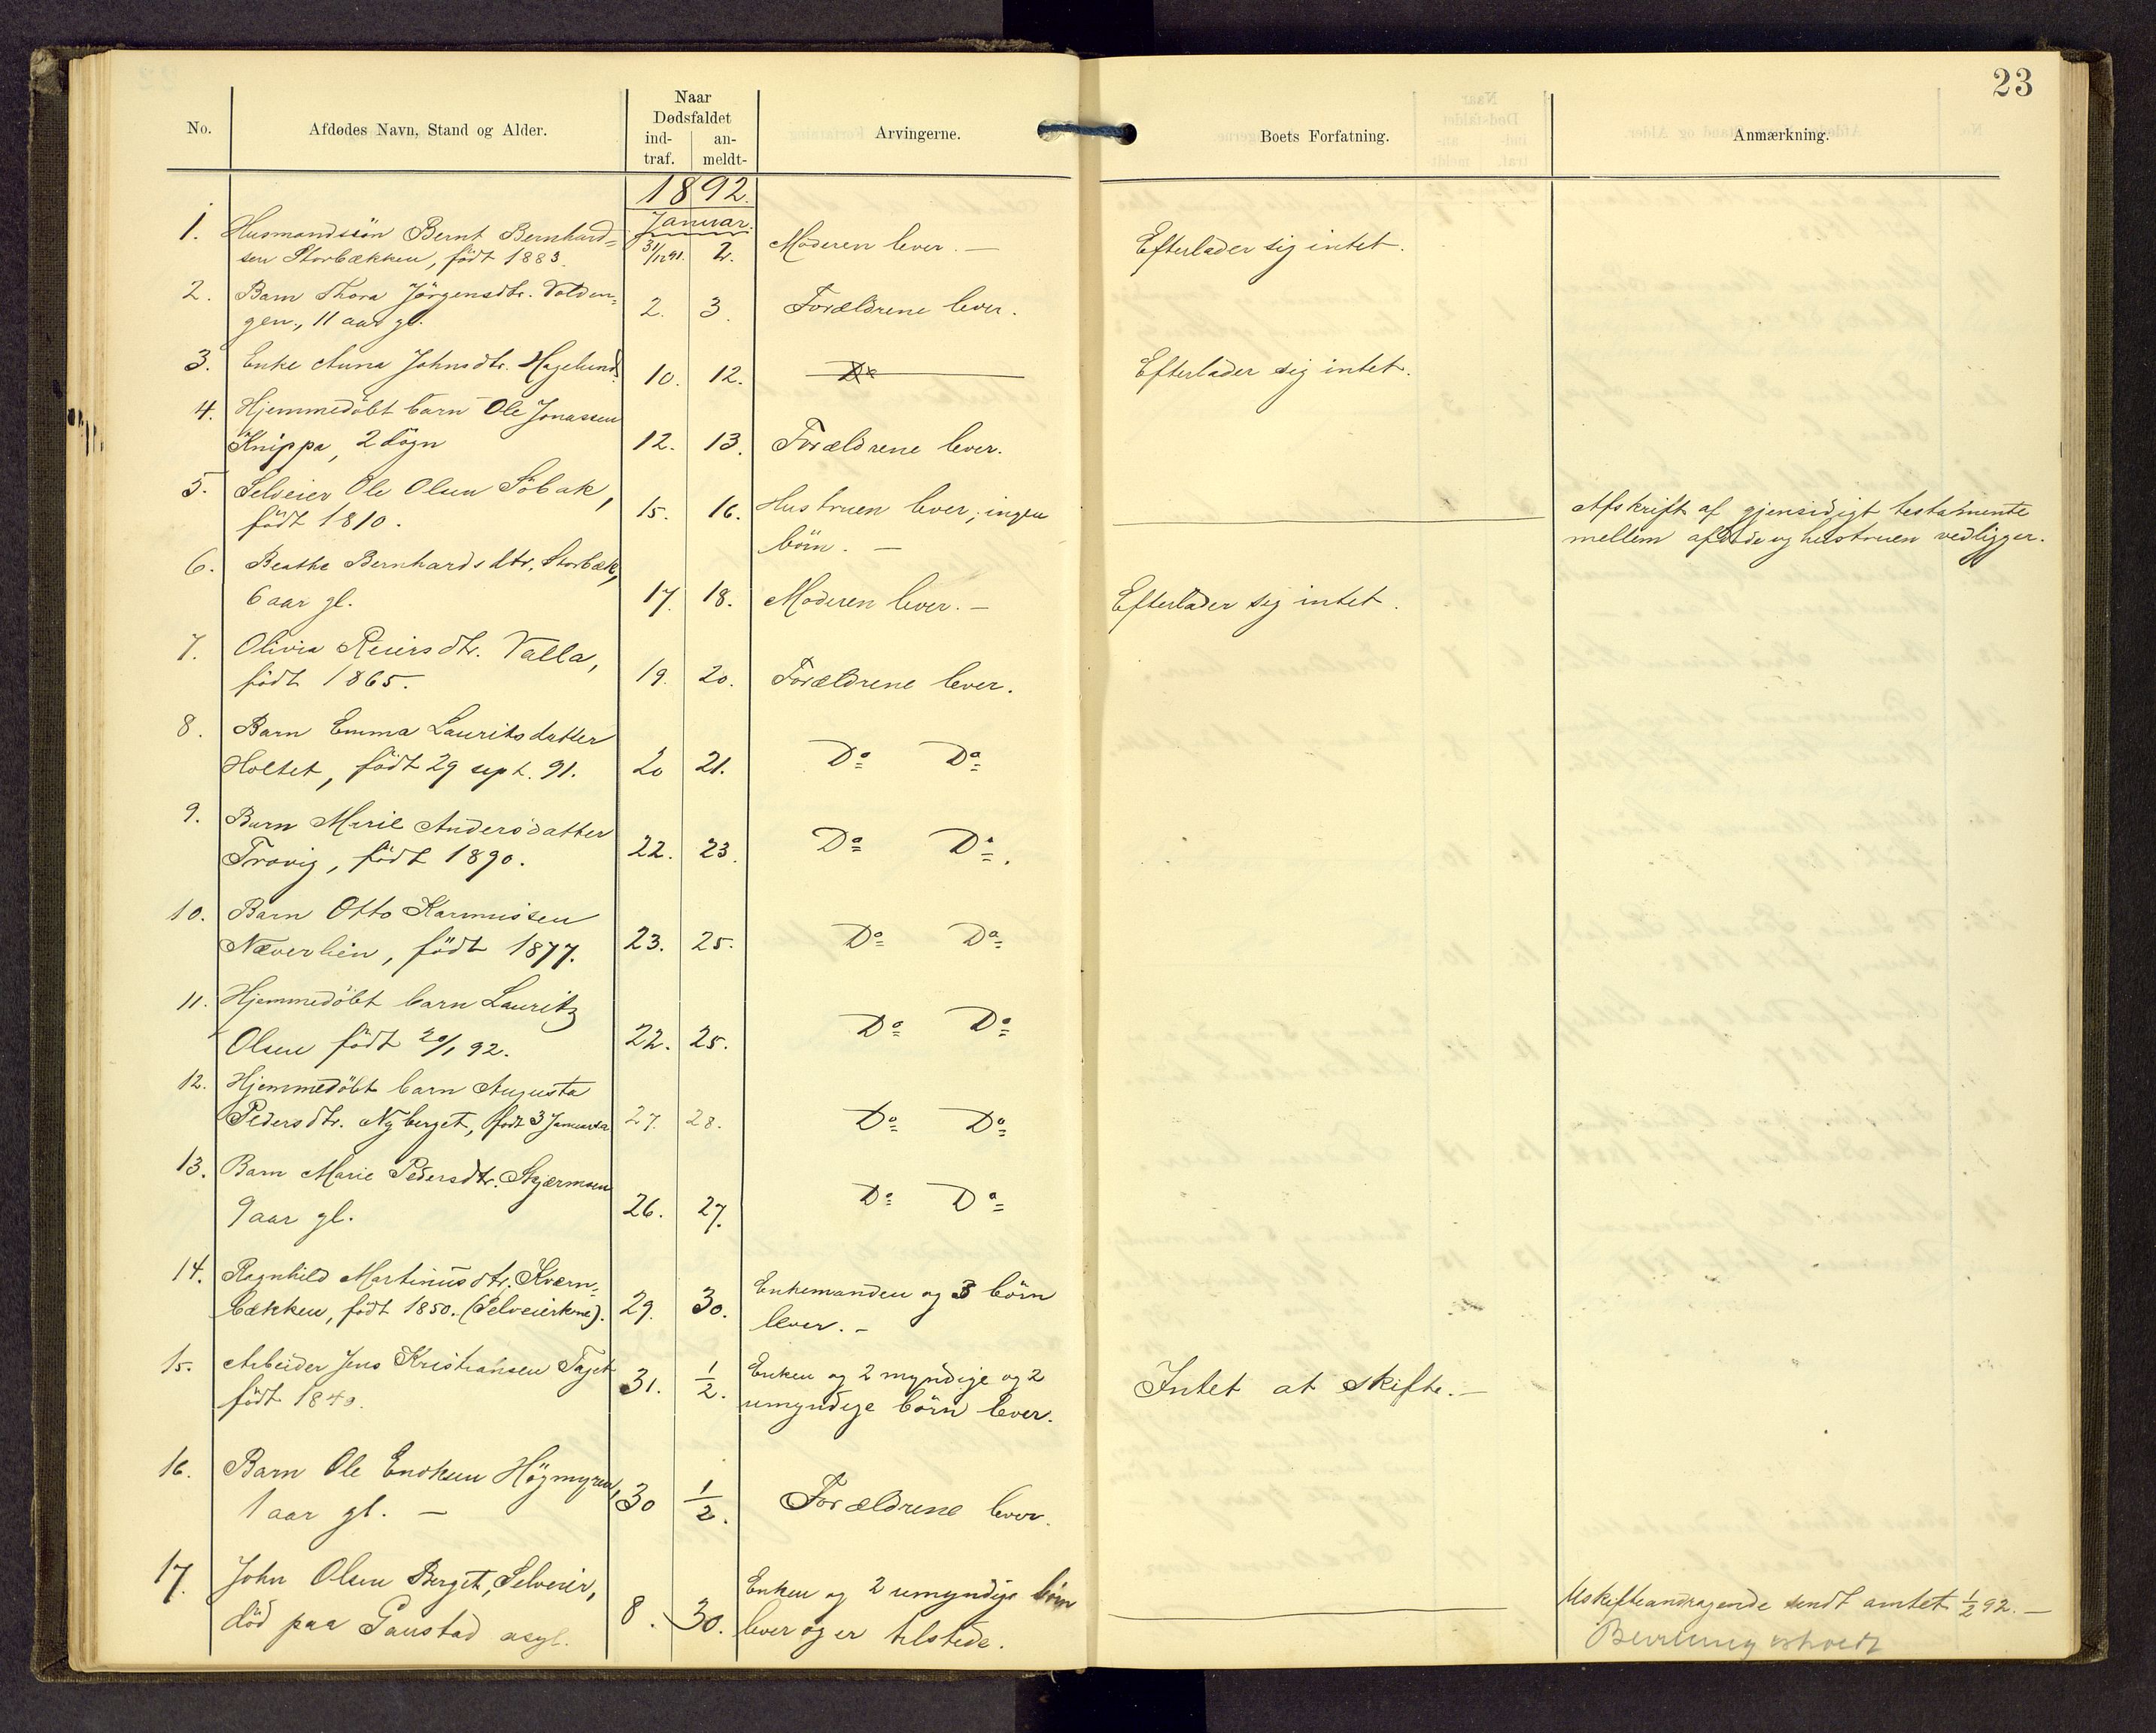 23
No.
Afdødes Navn, Stand og Alder.
Naar
Dødsfaldet
ind-
traf.
an-
meldt-
Arvingerne.
Boets Forfatning.
Anmærkning.
1892.
Januar.
1. Husmandssön Bernt Bernhard= 31/12 91. 2. Moderen lever. — Efterlader sig intet.
sen Storbækken, födt 1883.
2. Barn Thora Jörgensdtr. Volden= 2. 3. Forældrene lever.
gen, 11 aar gl.
3. Enke Anna Johnsdtr. Hagelund. 10. 12. Do Efterlader sig intet.
4. Hjemmedöbt barn Ole Jonassen
Knippa, 2 dögn 12. 13. Forældrene lever.
5. Selveier Ole Olsen Söbak, 15. 16. Hustruen lever; ingen Afskrift af gjensidigt testamente
födt 1810. börn. — mellem afdöde og hustruen vedligger.
6. Beathe Bernhardsdtr. Storbæk,
6 aar gl. 17. 18. Moderen lever. — Efterlader sig intet.
7. Olivia Reiersdtr. Valla,
födt 1865. 19. 20. Forældrene lever.
8. Barn Emma Lauritsdatter
Holtet, födt 29 sept. 91. 20 21. Do Do
9. Barn Marie Andersdatter
Trovig, födt 1890. 22. 23. Do Do.
10. Barn Otto Karinussen
Næverlien, födt 1877. 23. 25. Do Do
11. Hjemmedöbt barn Lauritz
Olsen födt 20/1 92. 22. 25. Do Do
12. Hjemmedöbt barn Augusta
Pedersdtr. Nyberget, födt 3 Januar 27. 28. Do Do
13. Barn Marie Pedersdtr. Skjærmoen
9 aar gl. 26. 27. Do Do
14. Ragnhild Martinusdtr. Kværn= Enkemanden og 3 börn
bækken, födt 1850. (Selveierkone). 29. 30. lever. —
15. Arbeider Jens Kristiansen Taget 31. 1/2. Enken og 2 myndige og 2 Intet at skifte. —
födt 1840. umyndige börn lever.
16. Barn Ole Endresen Högmyren,
1 aar gl. — 30 1/2. Forældrene lever.
17. John Olsen Berget, Selveier, Enken og 2 umyndige börn Uskifteandragende sendt amtet 1/2 92. —
död paa Gaustad asyl. 8. 30. lever og er tilstede. Bevilling